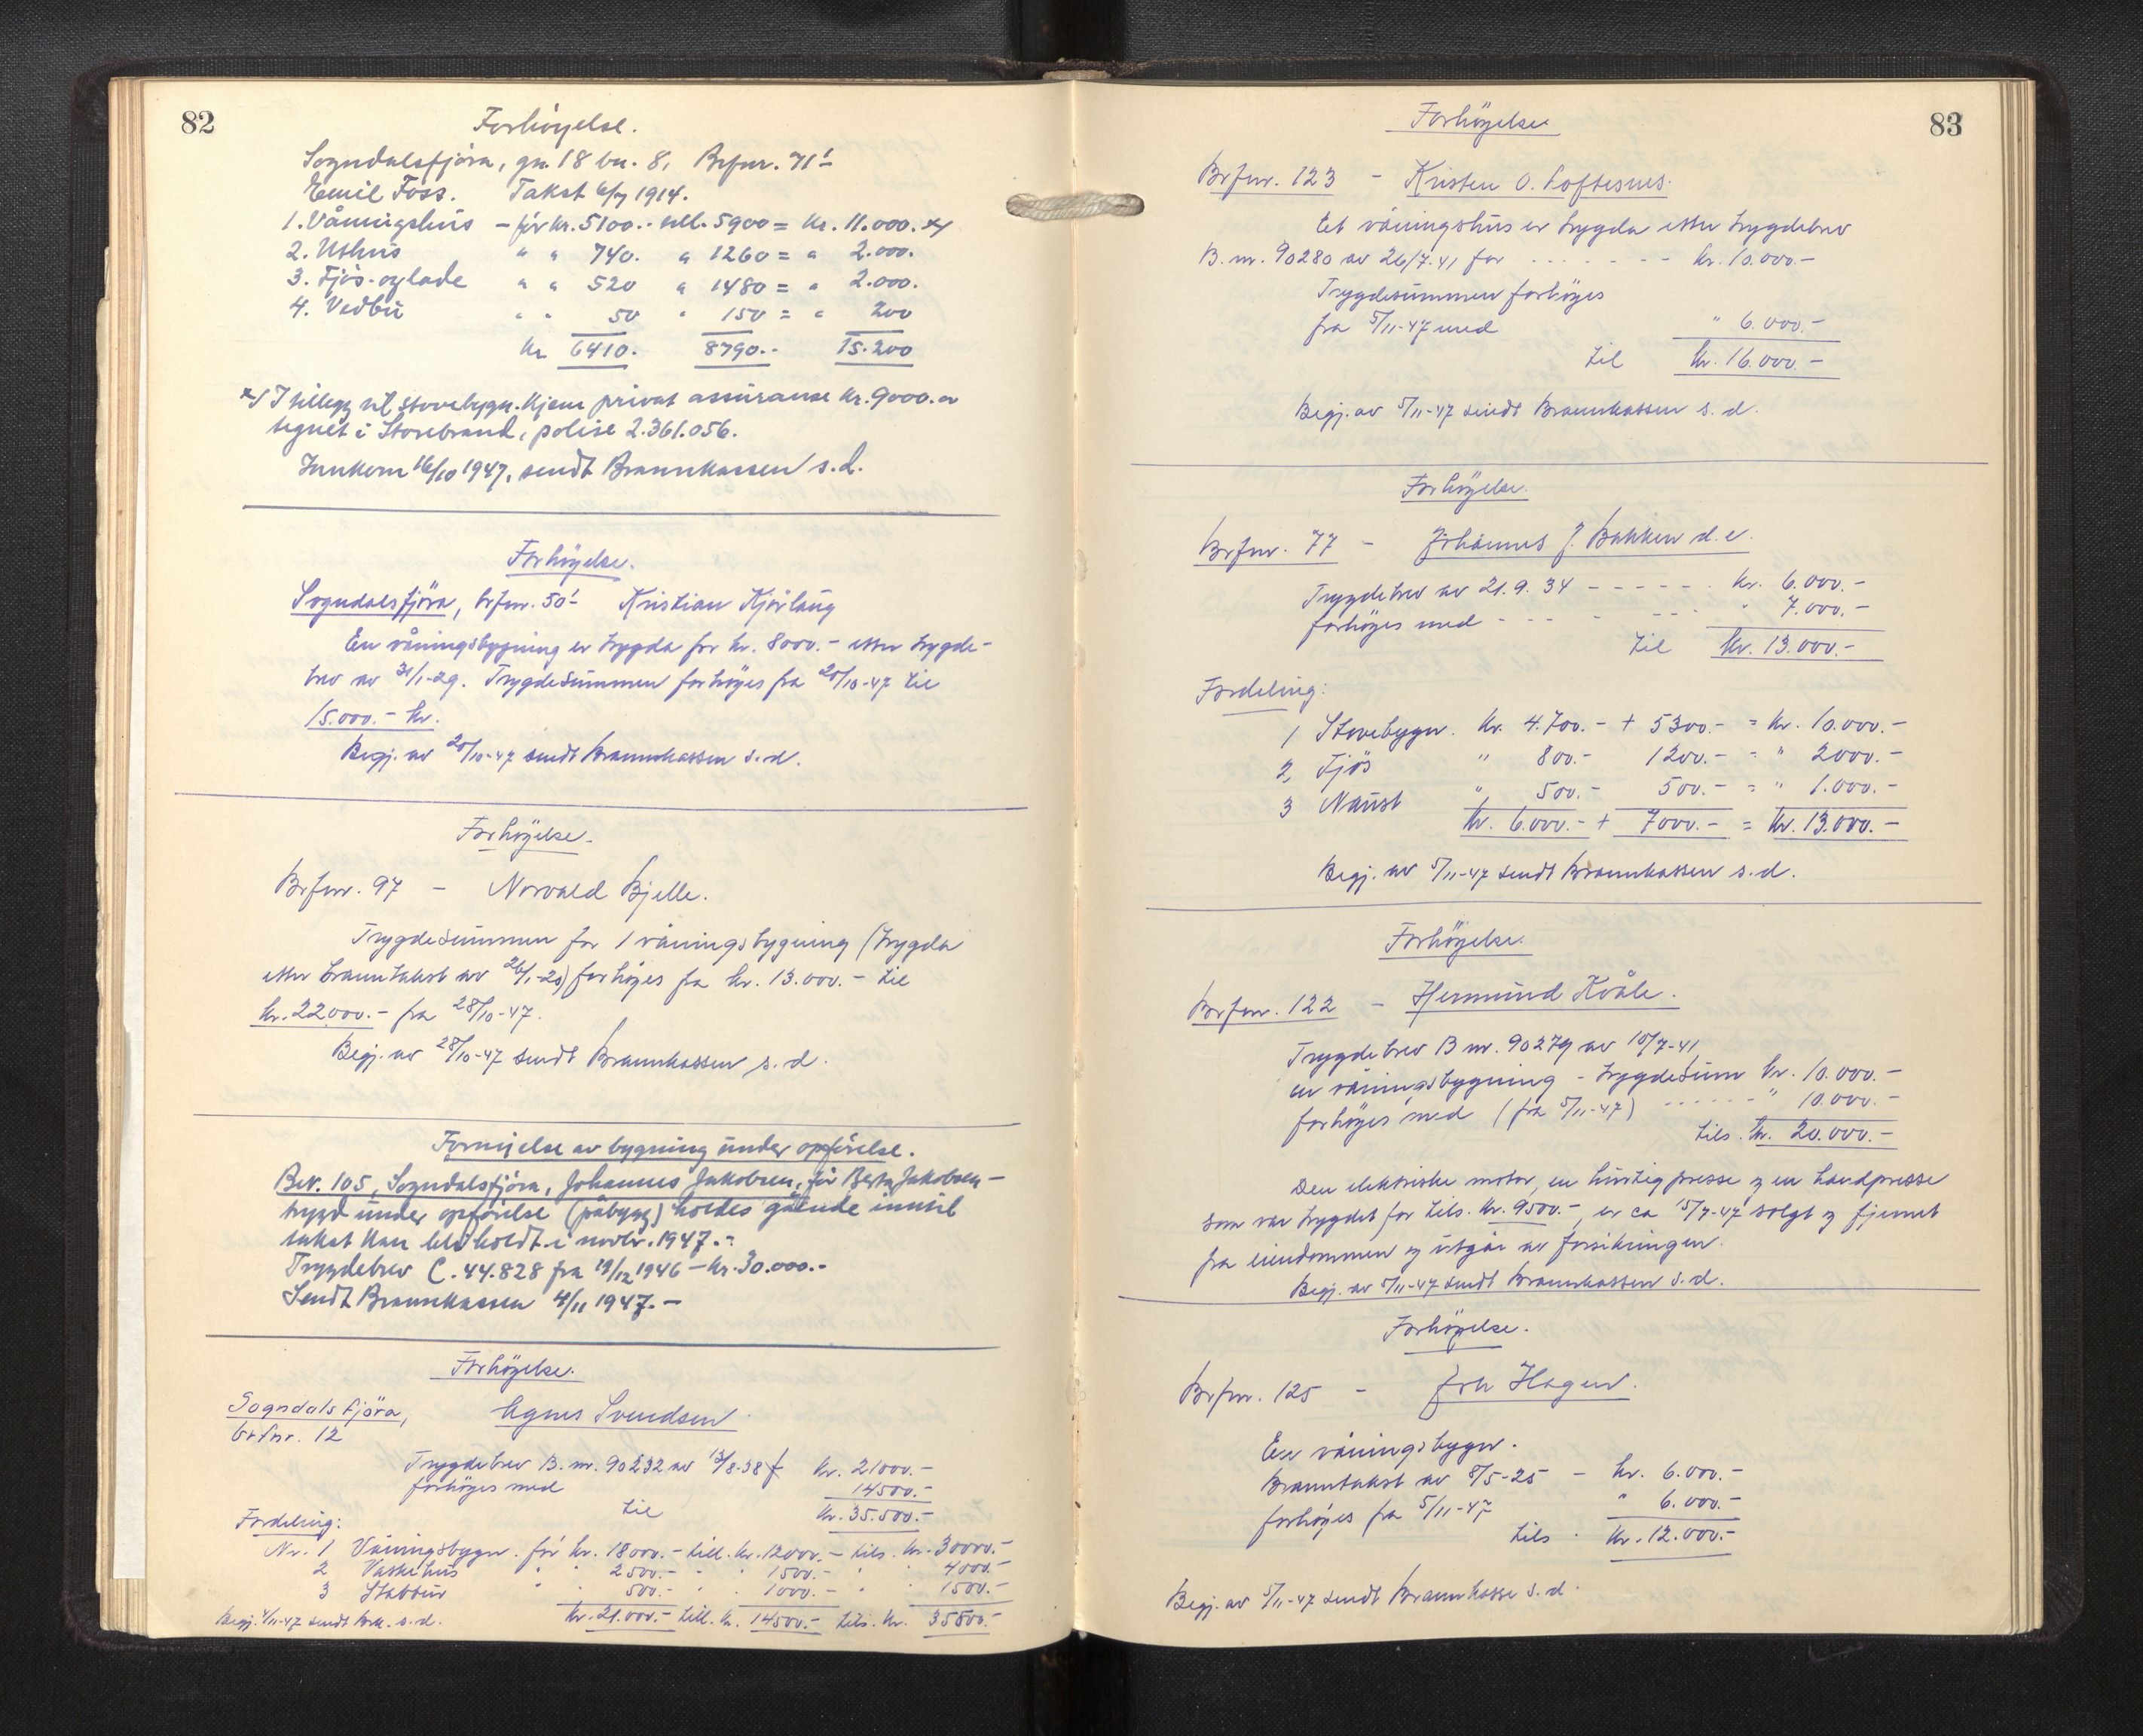 82
Forhöyelse.
Sogndalsfjöra, gn. 18 bn. 8, Brfnr. 71!
Emil Foss. Takst 6/7 1914.
1. Våningshus – før kr. 5100.- till. 5900 = kr. 11.000. x/
2. Uthus " " 740. " 1260 = " 2.000.
3. Fjös-oglade " " 520 " 1480 = " 2.000.
4. Vedbu " " 50 " 150 = " 200
Kr 6410. 8790.- 15.200
x/ I tillegg til stovebygn. kjem privat assuranse kr. 9000.-
tegnet i Storebrand, polise 2.361.056.
Innkom 16/10 1947, sendt Brannkassen s.d.
Forhöyelse.
Sogndalsfjöra, brfnr. 50! Kristian Kjörlaug
En våningsbygning er trygda for kr. 8000.- etter trygde-
brev av 31/1-29. Trygdesummen forhöyes fra 20/10-47 til
15.000.- kr.
Begj. av 20/10-47 sendt Brannkassen s.d.
Forhöyelse.
Brfnr. 97 – Norvald Bjelle.
Trygdesummen for 1 våningsbygning (trygda
etter branntakst av 26/1-28) forhöyes fra kr. 13.000.- til
kr. 22000.- fra 28/10-47.
Begj. av 28/10-47 sendt Brannkassen s.d.
Fornyelse av bygning under opförelse.
Brv. 105, Sogndalsfjöra, Johannes Jakobsen, för Berta Jakobsen –
trygd under opförelse (påbygg) holdes gåande inntil
takst kan bli holdt i novbr. 1947.-
Trygdebrev C. 44.828 fra 19/12 1946 – kr. 30.000.-
Sendt Brannkassen 4/11 1947.-
Forhöyelse.
Sogndalsfjöra, Agnes Svendsen
brfnr. 12
Trygdebrev B. nr. 90232 av 13/8-38 f kr. 21000.-
forhöyes med 14500.-
til kr. 35.500.-
Fordeling:
Nr. 1 Våningsbygn. för kr. 18000.- till. kr. 12000.- tils. kr. 30000.-
2 Vaskehus " " 2500.- " " 1500.- " " 4000.-
3 Stabbur " " 500.- " " 1000.- " " 1500.-
Begj. 4/11-47 sendt Brk. s.d. kr. 21.000.- till. kr. 14500.- tils. kr. 35500.-
83
Forhöyelse
Brfnr. 123 – Kristen O. Loftesnes.
Et våningshus er trygda etter trygdebrev
B. nr. 90280 av 26/7.41 for - - - - - - kr. 10.000.-
Trygdesummen forhöyes
fra 5/11-47 med " 6.000.-
til kr. 16.000.-
Begj. av 5/11-47 sendt Brannkassen s.d.
Forhöyelse.
Brfnr. 77 – Johannes J. Bakken d.e.
Trygdebrev av 21.9.34 - - - - - - kr. 6.000.-
forhöyes med - - - - - - - " 7.000.-
til kr. 13.000.-
Fordeling:
1 Stovebygn. kr. 4.700.- + 5300.- = kr. 10.000.-
2 Fjös " 800.- 1200.- = " 2000.-
3 Naust " 500.- 500.- = " 1.000.-
kr. 6.000.- + 7000.- = kr. 13.000.-
Begj. av 5/11-47 sendt Brannkassen s.d.
Forhöyelse.
Brfnr. 122 – Hermund Kvåle.
Trygdebrev B nr. 90279 av 10/7-41,
en våningsbygning – trygdesum kr. 10.000.-
forhöyes med (fra 5/11-47) - - - - - " 10.000.-
tils. kr. 20.000.-
Den elektriske motor, en hurtigpresse og en handpresse
som var trygdet for tils. kr. 9500.-, er ca 15/7-47 solgt og fjernet
fra eiendommen og utgår av forsikringen.
Begj. av 5/11-47 sendt Brannkassen s.d.
Forhöyelse.
Brfnr. 125 – Joh Hagen.
En våningsbygn.
Branntakst av 8/5-25 – kr. 6.000.-
forhöyes fra 5/11-47 " 6.000.-
tils. kr. 12.000.-
Begj. av 5/11-47 sendt Brannkasse s.d.